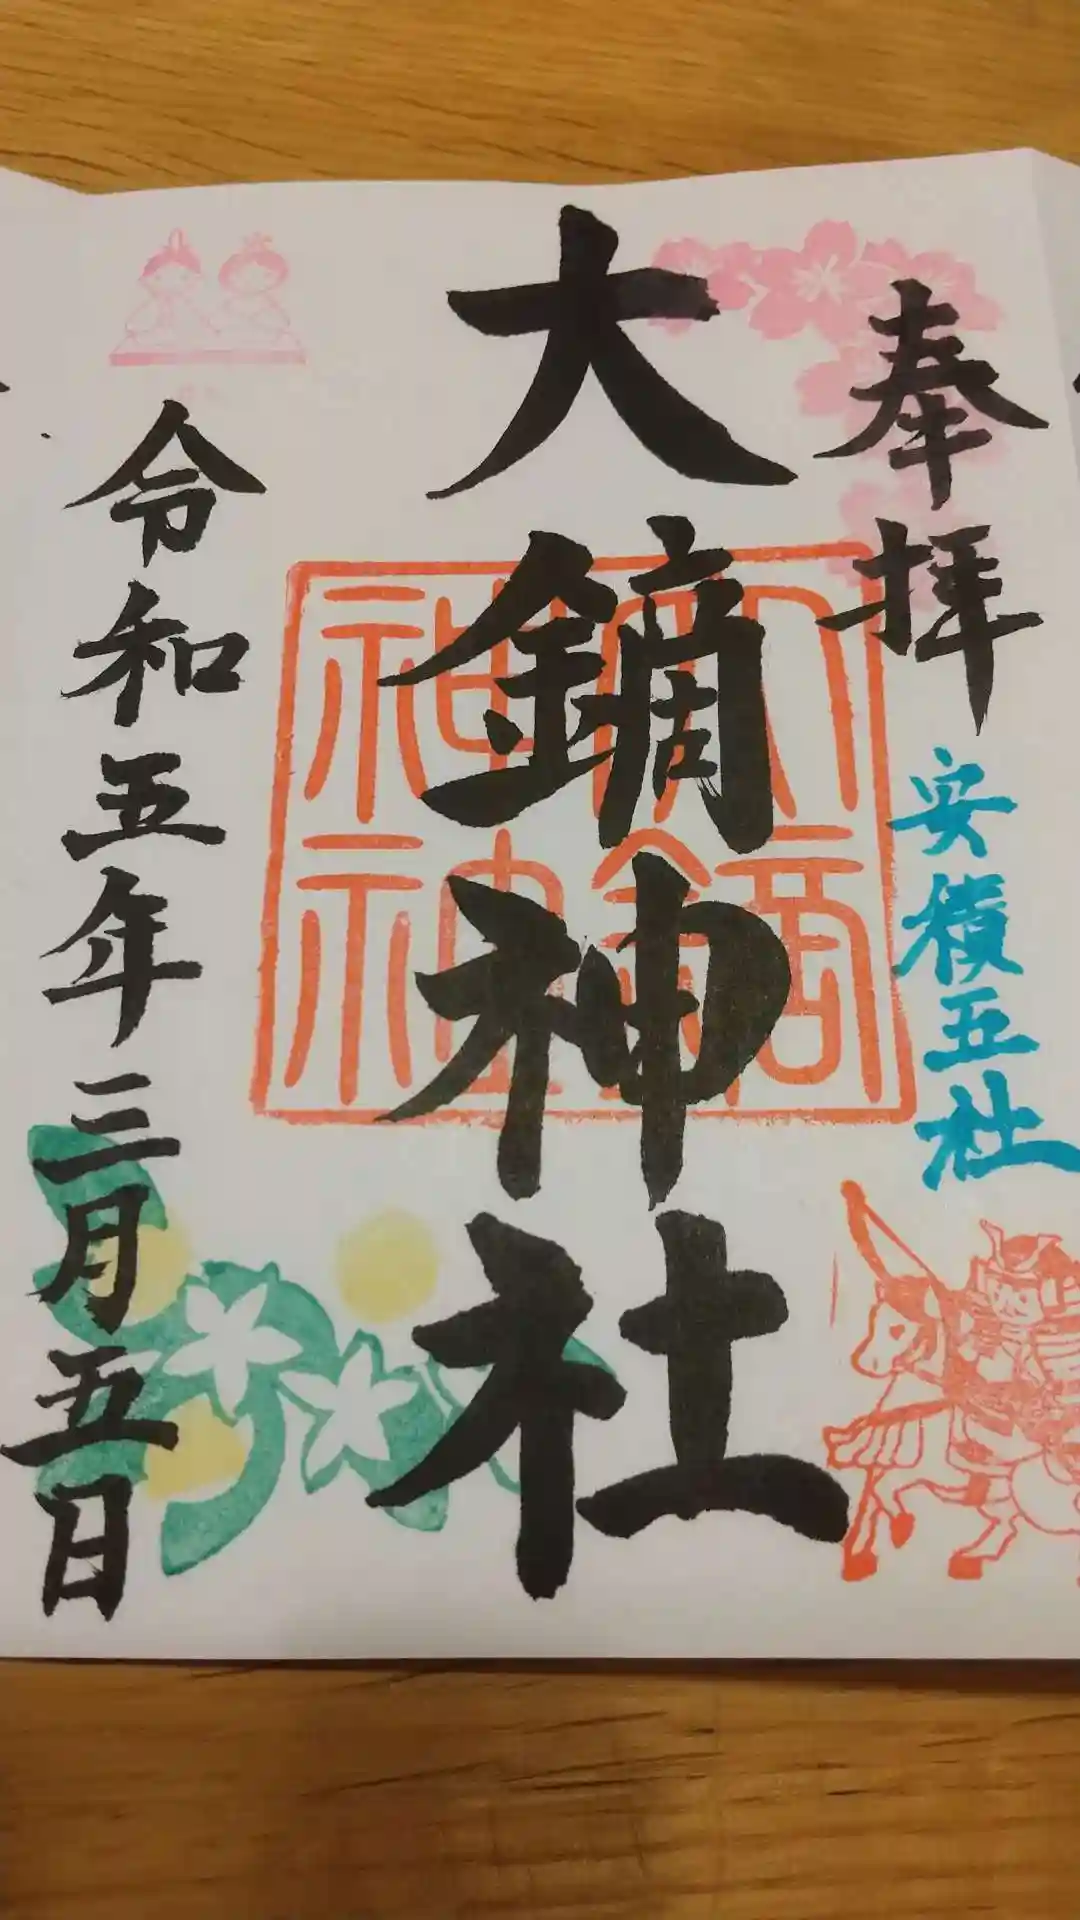 奉拝
安積五社
大鏑神社
大鏑神社
令和五年三月五日